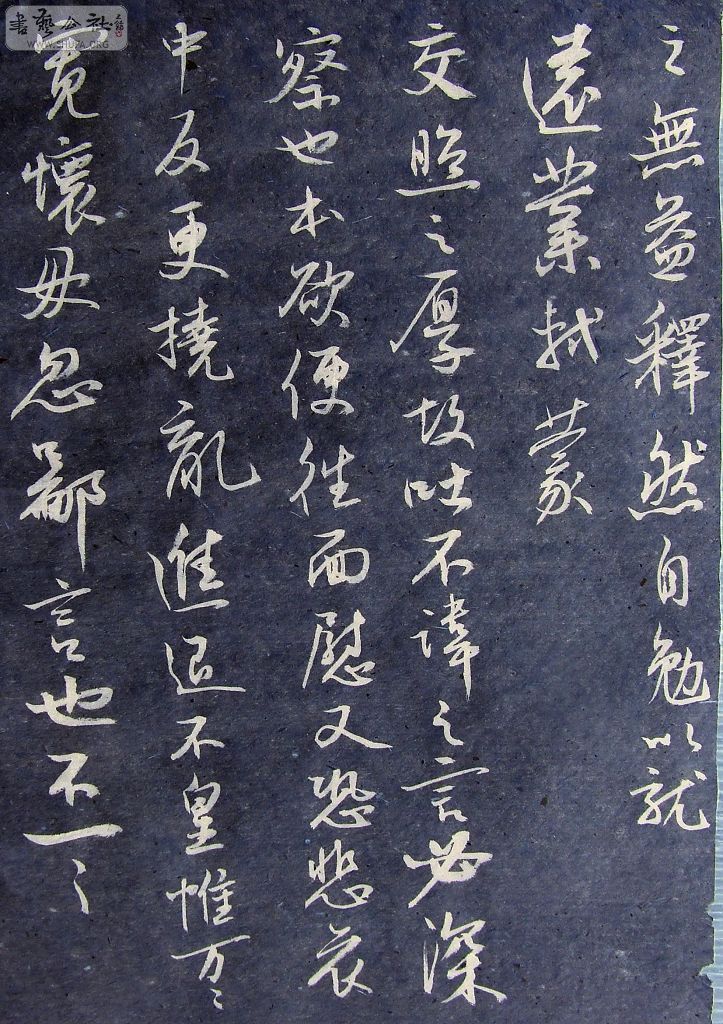 之無益釋然自勉以就
遠業軾蒙
交照之厚故吐不諱之言必深
察也本欲便往面慰又恐悲哀
中反更撓亂進退不皇惟万々
寬懷毋忽鄙言也不一々
書藝公社
WWW.SHUFA.ORG